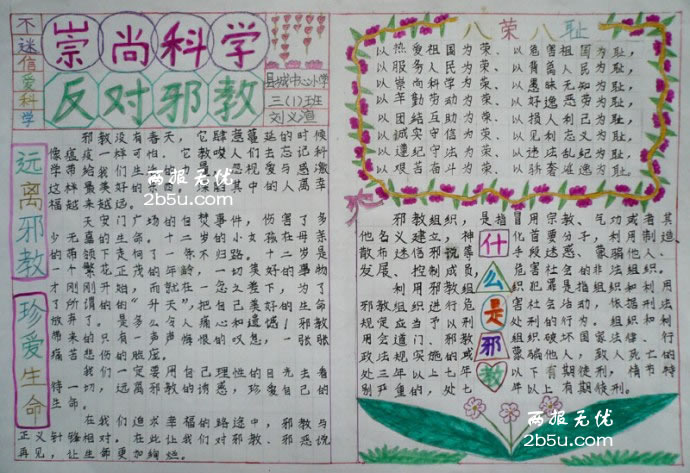 不迷信爱科学
崇尚科学
反对邪教
县城中心小学
三(1)班
远离邪教
珍爱生命
邪教没有春天，它肆意蔓延的时候
像瘟疫一样可怕。它教唆人们去忘记科
学带给我们生
这样最美好的东西，
其中的人离幸
福越来越远。
天安门广场的自焚事件，伤害了多
少无辜的生命。十二岁的小女孩在母亲
的带领下走向了一条不归路。十二岁是
一个繁花正茂的年龄，一切美好的事物
才刚刚开始，而就在一念之差下，为了
了所谓的的“升天”，把自己美好的生命
放弃了。是多么令人痛心和遗憾！邪教
带来的只有一声声悔恨的叹息，一张张
痛苦悲伤的脸庞。
我们一定要用自己理性的目光去看
待一切，远离邪教的诱惑，珍爱自己的
生命。
在我们追求幸福的路途中，邪教与
正义针锋相对。在此让我们对邪教、邪恶说
再见，让生命更加绚烂。
八荣八耻
以热爱祖国为荣、以危害祖国为耻，
以服务人民为荣、以背离人民为耻，
以崇尚科学为荣、以愚昧无知为耻，
以辛勤劳动为荣、以好逸恶劳为耻，
以团结互助为荣、以损人利己为耻，
以诚实守信为荣、以见利忘义为耻，
以遵纪守法为荣、以违法乱纪为耻，
以艰苦奋斗为荣、以骄奢淫逸为耻。
什么是邪教
邪教组织，是指冒用宗教、气功或者其
他名义建立，神化首要分子，利用制造
散布迷信邪说等手段迷惑、蒙骗他人，
发展、控制成员，危害社会的非法组织。
利用邪教组织犯罪是指组织和利用
邪教组织进行危害社会活动，依据刑法
规定应当予以刑处刑的行为。组织和利
用会道门、邪教组织破坏国家法律、行
政法规实施的或蒙骗他人，致人死亡的
处三年以上七年以下有期徒刑，情节特
别严重的，处七年以上有期徒刑。
两报无优
2b5u.com
两报无优
2b5u.com